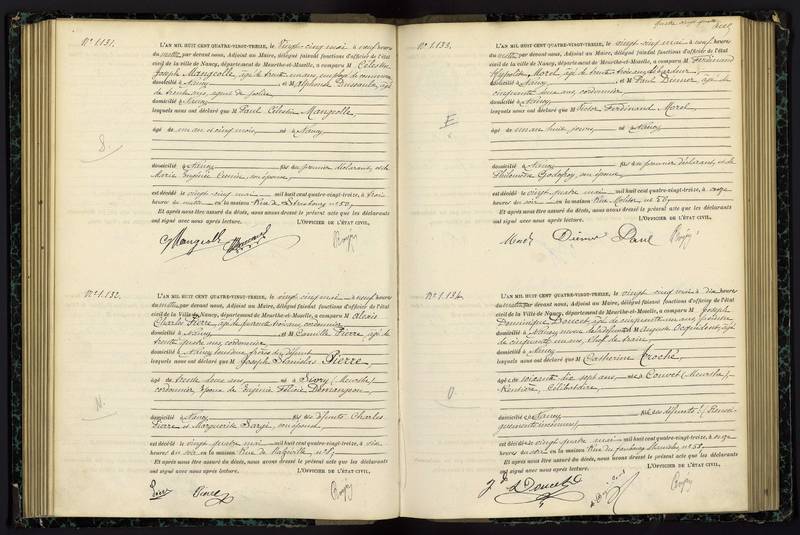 N° 1.131.
L'AN MIL HUIT CENT QUATRE-VINGT-TREIZE, le vingt cinq mai à neuf heures
du matin par devant nous, Adjoint au Maire, délégué faisant fonctions d'officier de l'état
civil de la ville de Nancy, département de Meurthe-et-Moselle, a comparu M Célestin
Joseph Mangeolle, âgé de trente ans, employé de
domicilié à Nancy et M Alphonse âgé
de trente six, agent de police
domicilié à Nancy
lesquels nous ont déclaré que M Paul Célestin Mangeolle
âgé de un an et cinq mois, né à Nancy
domicilié à Nancy fils du premier déclarant, et de
Marie Eugénie son épouse,
est décédé le vingt cinq mai mil huit cent quatre-vingt-treize, à trois
heures du matin en la maison Rue de Strasbourg n° 50,
Et après nous être assuré du décès, nous avons dressé le présent acte que les déclarants
ont signé avec nous après lecture. L'OFFICIER DE L'ÉTAT CIVIL,
C Mangeolle
N° 1.132.
L'AN MIL HUIT CENT QUATRE-VINGT-TREIZE, le vingt cinq mai à neuf heures
du matin par devant nous, Adjoint au Maire, délégué faisant fonctions d'officier de l'état
civil de la Ville de Nancy, département de Meurthe-et-Moselle, a comparu M Alexis
Charles Pierre, âgé de quarante trois ans, cordonnier
domicilié à Nancy et M Camille Pierre, âgé de
trente quatre ans, cordonnier,
domicilié à Nancy tous deux frères du défunt
lesquels nous ont déclaré que M Joseph Stanislas Pierre,
âgé de trente deux ans né à Sivry (Meurthe)
cordonnier, époux de Eugénie Félicie Démangeon
domicilié à Nancy fils des défunts Charles
Pierre et Marguerite son épouse
est décédé le vingt quatre mai mil huit cent quatre-vingt-treize, à six
heures du soir en la maison Rue de n° 8,
Et après nous être assuré du décès, nous avons dressé le présent acte que les déclarants
ont signé avec nous après lecture. L'OFFICIER DE L'ÉTAT CIVIL,
N° 1.133.
L'AN MIL HUIT CENT QUATRE-VINGT-TREIZE, le vingt cinq mai à neuf heures
du matin par devant nous, Adjoint au Maire, délégué faisant fonctions d'officier de l'état
civil de la ville de Nancy, département de Meurthe-et-Moselle, a comparu M Ferdinand
Hippolyte Morel, âgé de trente trois ans
domicilié à Nancy et M Paul Diener, âgé de
cinquante deux ans, cordonnier
domicilié à Nancy
lesquels nous ont déclaré que M Victor Ferdinand Morel
âgé de un an huit jours, né à Nancy
domicilié à Nancy fils du premier déclarant, et de
Philomène Godefroy, son épouse
est décédé le vingt quatre mai mil huit cent quatre-vingt-treize, à onze
heures du soir en la maison Rue Molitor, n° 50,
Et après nous être assuré du décès, nous avons dressé le présent acte que les déclarants
ont signé avec nous après lecture. L'OFFICIER DE L'ÉTAT CIVIL,
Diener Paul
N° 1.134.
L'AN MIL HUIT CENT QUATRE-VINGT-TREIZE, le vingt cinq mai à dix heures
du matin par devant nous, Adjoint au Maire, délégué faisant fonctions d'officier de l'état
civil de la ville de Nancy, département de Meurthe-et-Moselle, a comparu M Joseph
Dominique Doucet, âgé de cinquante un ans,
domicilié à Nancy et M Auguste âgé
de cinquante un ans, chef de
domicilié à Nancy
lesquels nous ont déclaré que M Catherine Croché,
âgé de soixante dix sept ans, né à (Meurthe),
Rentière, Célibataire,
domicilié à Nancy fils des défunts (Rensei-
gnements inconnus)
est décédée le vingt quatre mai mil huit cent quatre-vingt-treize, à onze
heures du soir en la maison Rue du faubourg n° 58,
Et après nous être assuré du décès, nous avons dressé le présent acte que les déclarants
ont signé avec nous après lecture. L'OFFICIER DE L'ÉTAT CIVIL,
Doucet